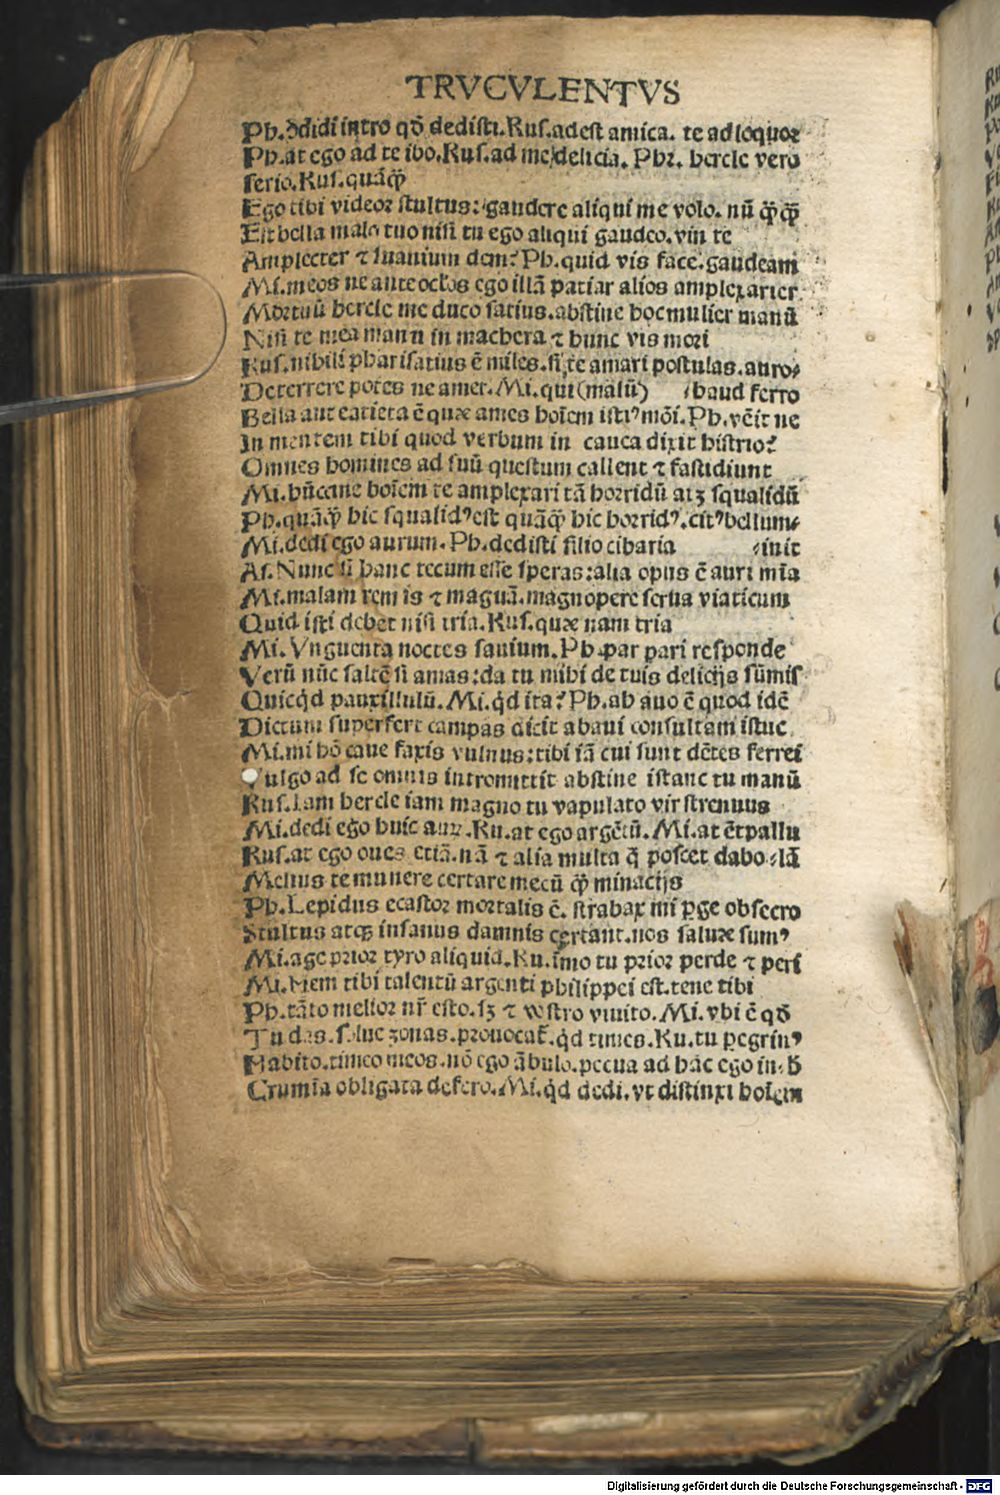 TRVCVLENTVS
Pb.ꝺdidi intro qđ dedisti.Rus.adest amica. te adloquor
Pb.at ego ad te ibo.Rus.ad me delicia. Pbr. bercle vero
serio.Rus.quāꝙ
Ego tibi videor stultus: gaudere aliqui me volo. nū ꝙꝙ
Est bella malo tuo nisi tu ego aliqui gaudeo.vin te
Amplecter ⁊ suauium dem? Pb.quid vis face.gaudeam
Mi.meos ne ante oclos ego illā patiar alios amplexarier
Mortuū bercle me duco satius.abstine hoc mulier manū
Nisi te mea manu in machera ⁊ hunc vis mori
Rus.nihili pharisatius ē miles.si te amari postulas.auro
Deterrere potes ne amet.Mi.qui (malū) haud ferro
Bella aut eatieta ē quæ ames hoīem isti᾽ mōi.Pb.vēit ne
In mentem tibi quod verbum in cauea dixit histrio?
Omnes homines ad suū questum callent ⁊ fastidiunt
Mi.hūccine hoīem te amplexari tā horridū atꝫ squalidū
Pb.quāꝙ hic squalid᾽ est quāꝙ hic horrid᾽.scit᾽ bellum
Mi.dedi ego aurum. Pb.dedisti filio cibaria inic
As.Nunc si hanc tecum esse speras:alia opus ē auri mīa
Mi.malam rem is ⁊ magnā.magnopere serua viaticum
Quid isti debet nisi tria.Rus.quæ nam tria
Mi.Vnguenta noctes sauium.Pb.par pari responde
Verū nūc saltē si amas:da tu mihi de tuis delicijs sūmis
Quicqd pauxillulū.Mi.qd ita? Pb.ab auo ē quod idē
Dictum superfert campas dicit abaui consultam istuc
Mi.mi hō caue faxis vulnus:tibi iā cui sunt dētes ferrei
Vulgo ad se omnis intromittit abstine istanc tu manū
Rus.Iam hercle iam magno tu vapulato vir strenuus
Mi.dedi ego huic aur.Ru.at ego argētū.Mi.at ēt pallu
Rus.at ego oues etiā.nā ⁊ alia multa q̄ poscet dabo lā
Melius te munere certare mecū ꝙ minacijs
Pb.Lepidus ecastor mortalis ē. strabax mi ꝑge obsecro
Stultus atqꝫ insanus damnis certant.nos saluæ sum᾽
Mi.age prior tyro aliquid.Ru.īmo tu prior perde ⁊ peri
Mi.Hem tibi talentū argenti philippei est.tene tibi
Pb.tāto melior nr̄ esto.sꝫ ⁊ vestro viuito. Mi.vbi ē qđ
Tu das.solue zonas.prouocat̄.qd times.Ru.tu ꝑegrin᾽
Habito.timeo meos.nō ego ābulo.pecua ad hāc ego in h
Crumīa obligata defero.Mi.qd dedi.vt distinxi hoīem
Digitalisierung gefördert durch die Deutsche Forschungsgemeinschaft - DFG